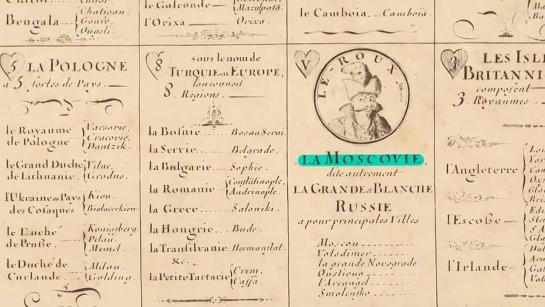 le Golconde
Mazupata.
le Camboia. Camboia.
Bengala
Chatigan.
Gouro.
Ougeli.
l'Orixa
Orixa.
5
LA POLOGNE
a 5. sortes de Pays
le Royaume de Pologne
Varsovie.
Cracovie.
Dantzik.
le Grand Duché de Lithuanie.
Vilne.
Grodno.
l'Ukraine ou Pays des Cosaques
Kiou.
le Duché de Prusse.
Konigsberg.
Pilau.
Memel.
le Duché de Curlande
Mitau.
Golding.
8
sous le nom de
TURQUIE en EUROPE,
l'on connoit
8. Regions.
la Bosnie Bosna Serai.
la Servie Belgrade.
la Bulgarie Sophie.
la Romanie
Constantinople,
Andrinople.
la Grece Saloniki.
la Hongrie Bude.
la Transilvanie Hermanstat.
&c.
la Petite Tartarie
Crim.
Caffa.
V
LE-ROUX
LA MOSCOVIE,
dite autrement
LA GRANDE et BLANCHE
RUSSIE
a pour principales Villes
Moscou
Volodimer
la grande Novogrode
Oustioug
l'Arcangel
Smolensko
LES ISLES
BRITANNI
composent
3. Royaumes.
l'Angleterre
l'Escosse
l'Irlande